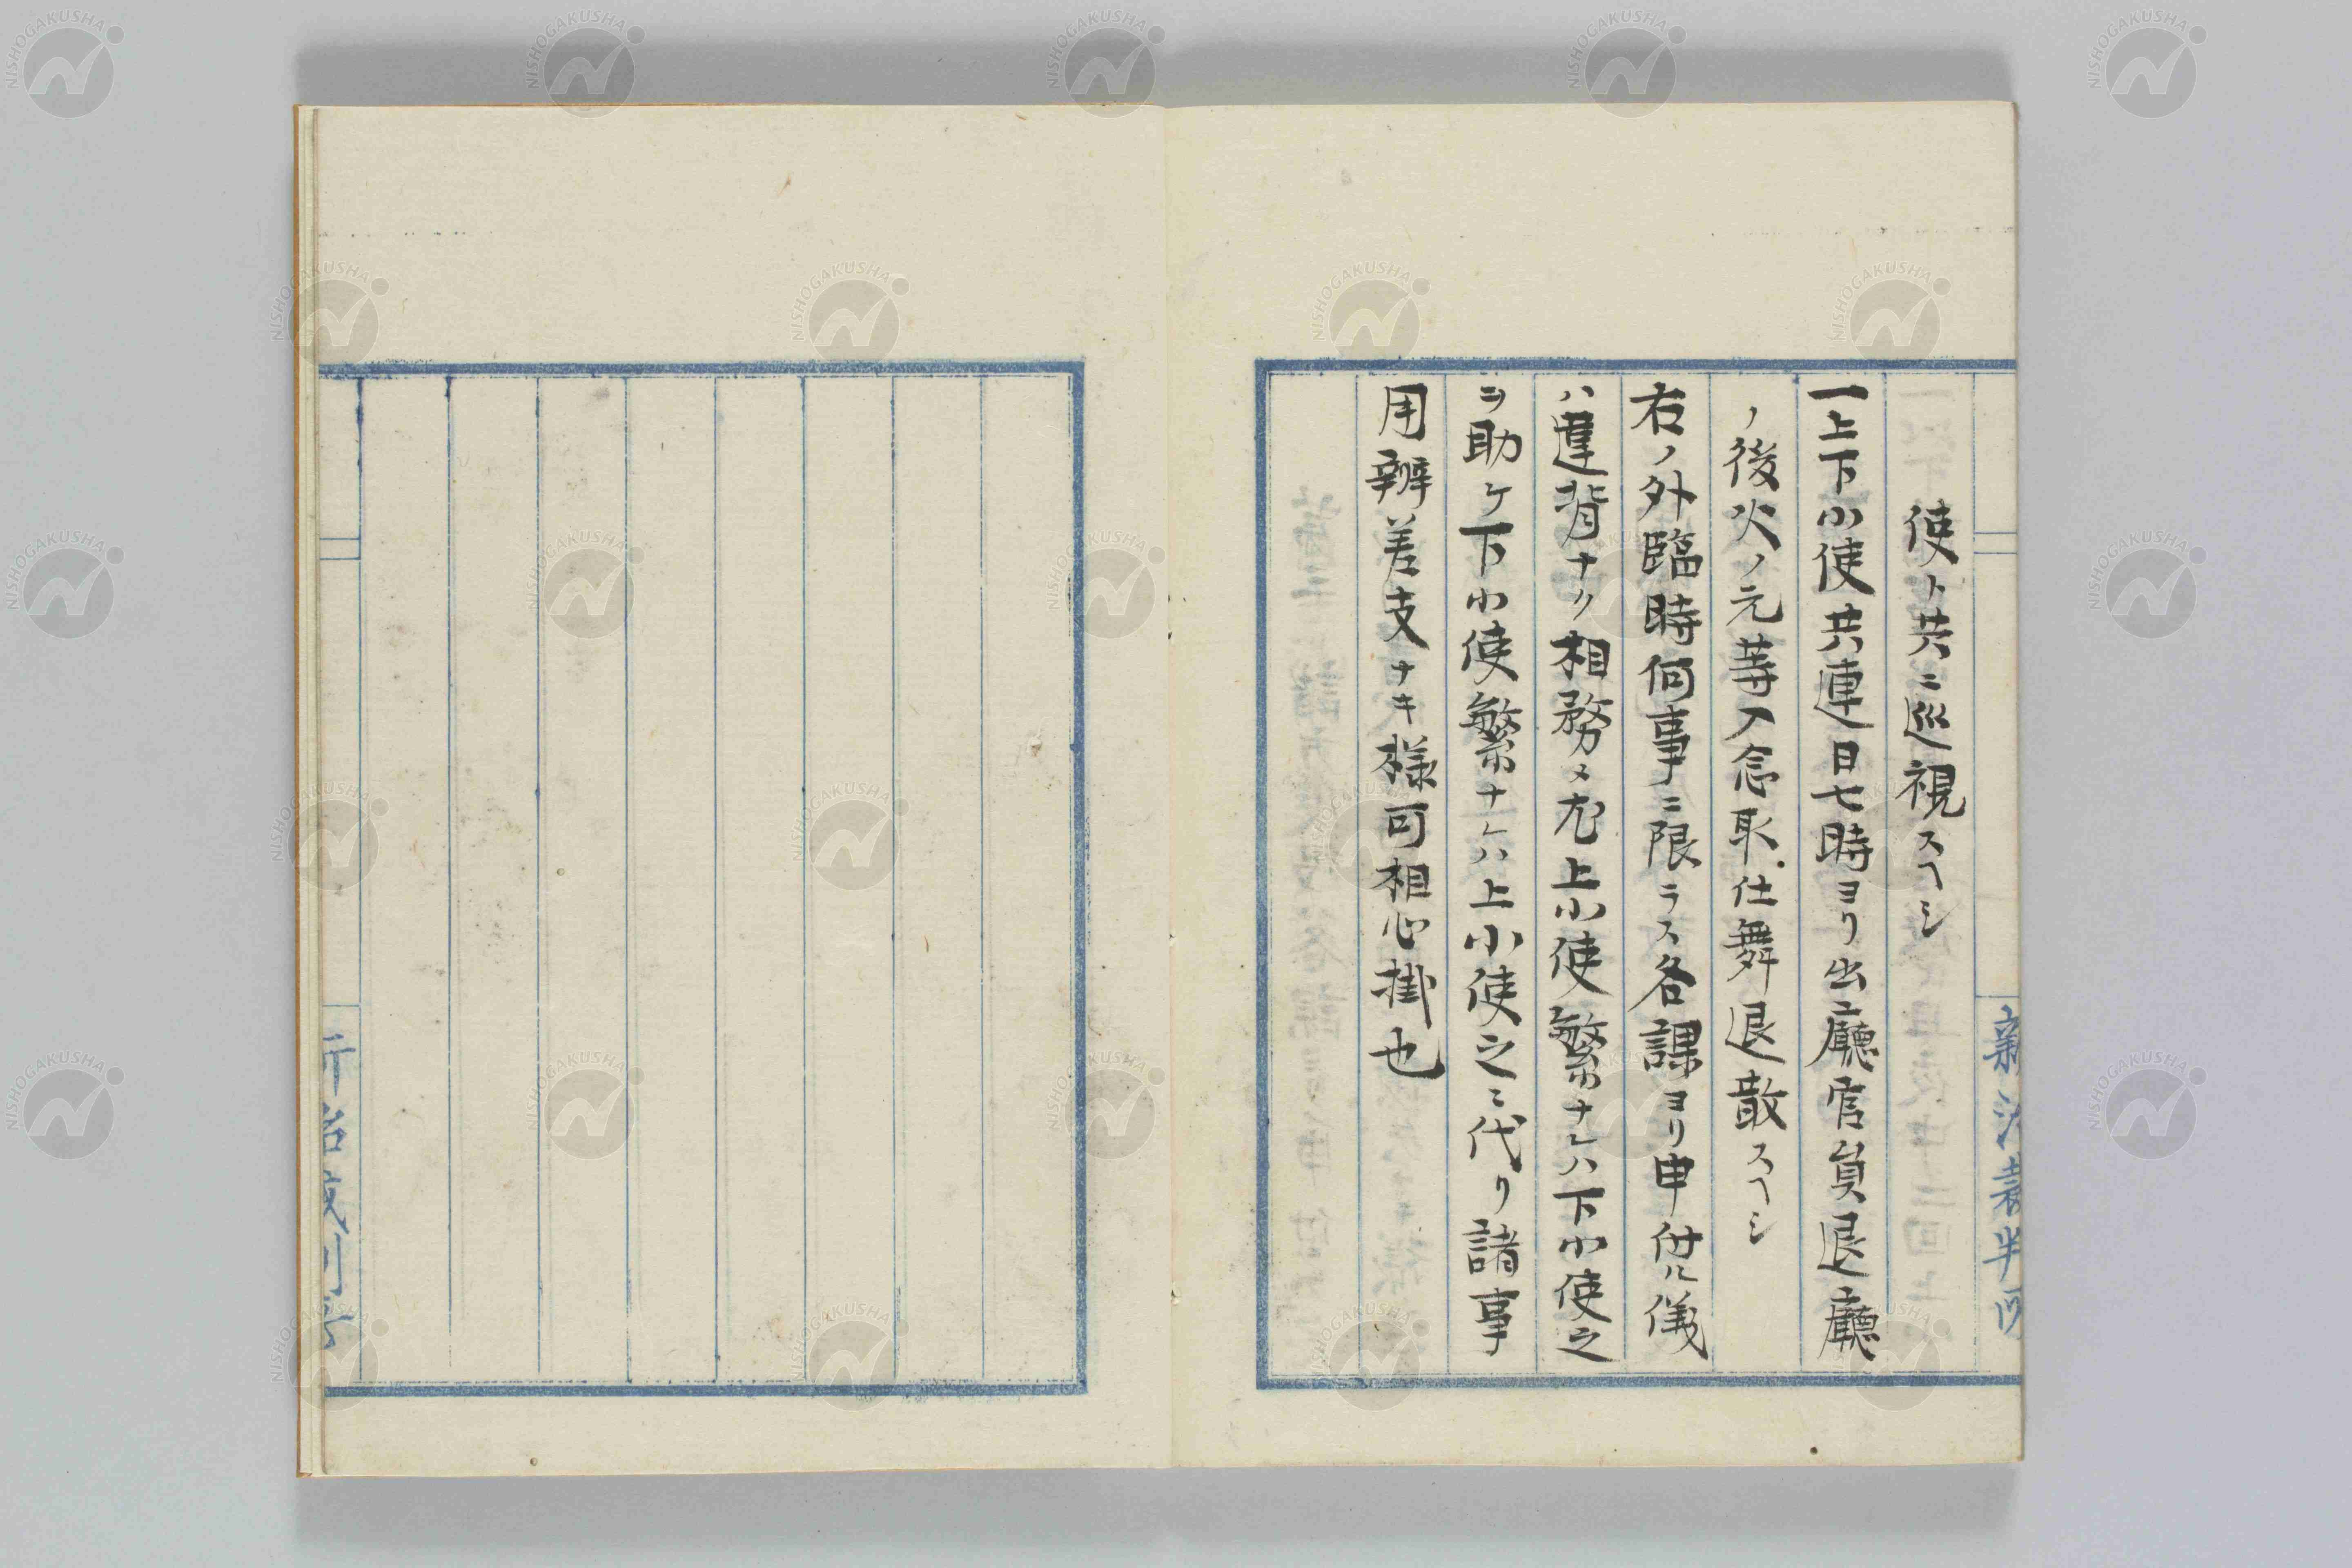 使ト共ニ巡視スヘシ
一上下小使共連日七時ヨリ出廳官員退廳
ノ後火ノ元等入念取仕舞退散スヘシ
右ノ外臨時何事ニ限ラス各課ヨリ申付ル儀
ハ違背ナク相務メ尤上小使繁ナレハ下小使之
ヲ助ケ下小使繁ナレハ上小使之ニ代リ諸事
用辨差支ナキ様可相心掛也
NISHOGAKUSHA